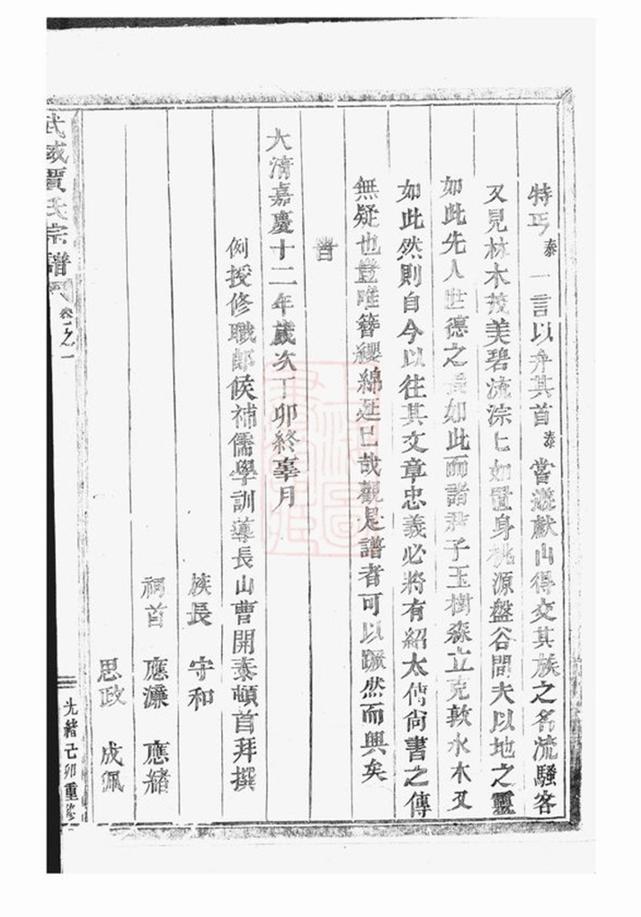 特丐泰一言以弁其首泰嘗遊獻山得交其族之名流騷客
又見林木茂美碧流淙匕如置身桃源盤谷間夫以地之靈
如此先人世德之長如此而諸君子玉樹森立克敦水木又
如此然則自今以往其文章忠義必將有紹太傅尚書之傳
無疑也豈唯簪纓綿延已哉觀是譜者可以蹶然而興矣
旹
大清嘉慶十二年歲次丁卯終辜月
例授修職郎候補儒學訓導長山曹開泰頓首拜撰
族長 守和
祠首 應濂 應緒
思政 成佩
武威賈氏宗譜 卷之一
光緒己卯重修